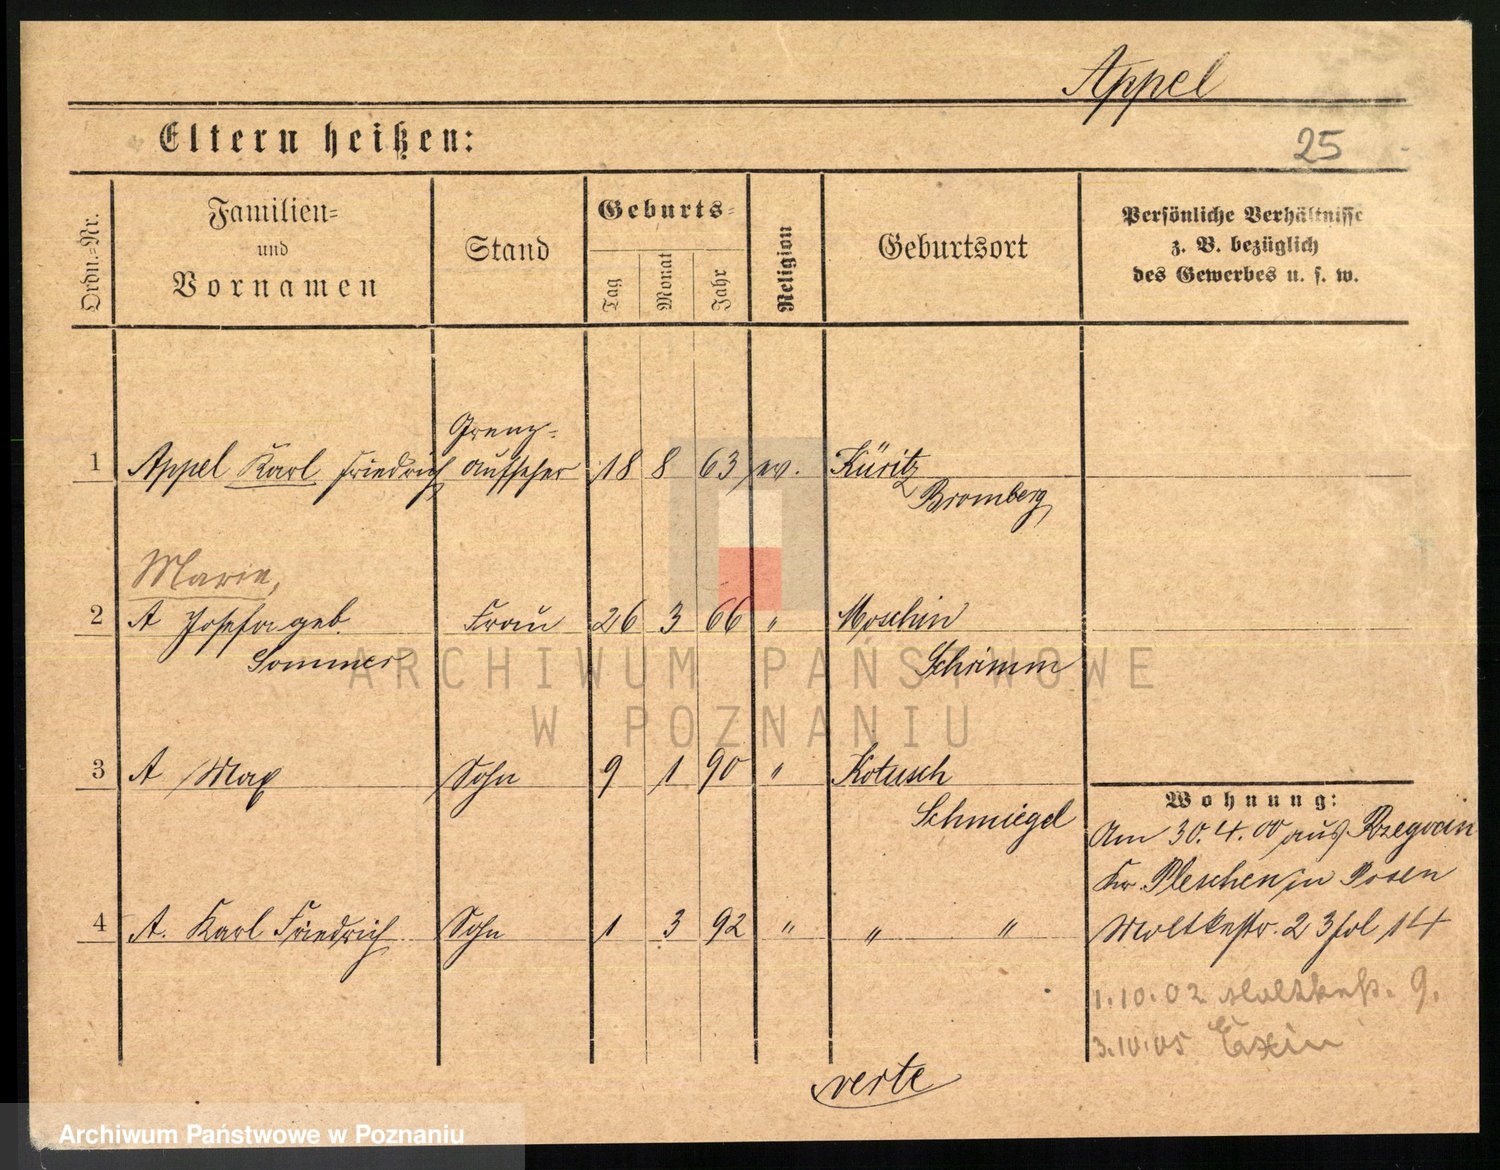 Appel
Eltern heißen:
25
Ordn.-Nr.
Familien-
und
Vornamen
Stand
Geburts-
Tag
Monat
Jahr
Religion
Geburtsort
Persönliche Verhältnisse
z. B. bezüglich
des Gewerbes u. s. w.
Grenz-
1 Appel Karl Friedrich aufseher 18 8 63 ev.
Bromberg
Marie,
2 A Josefa geb. Frau 26 3 66 " Moschin
Sommer Schrimm
3 A Max Sohn 9 1 90 " Kotusch
Schmiegel
4 A. Karl Friedrich Sohn 1 3 92 " " "
Wohnung:
Am 30.4.00 aus
Kr. Pleschen in Posen
Moltkestr. 2 3 fol 14
1.10.02 Moltkestr. 9.
3.10.05 Exin
verte
ARCHIWUM PAŃSTWOWE
W POZNANIU
Archiwum Państwowe w Poznaniu